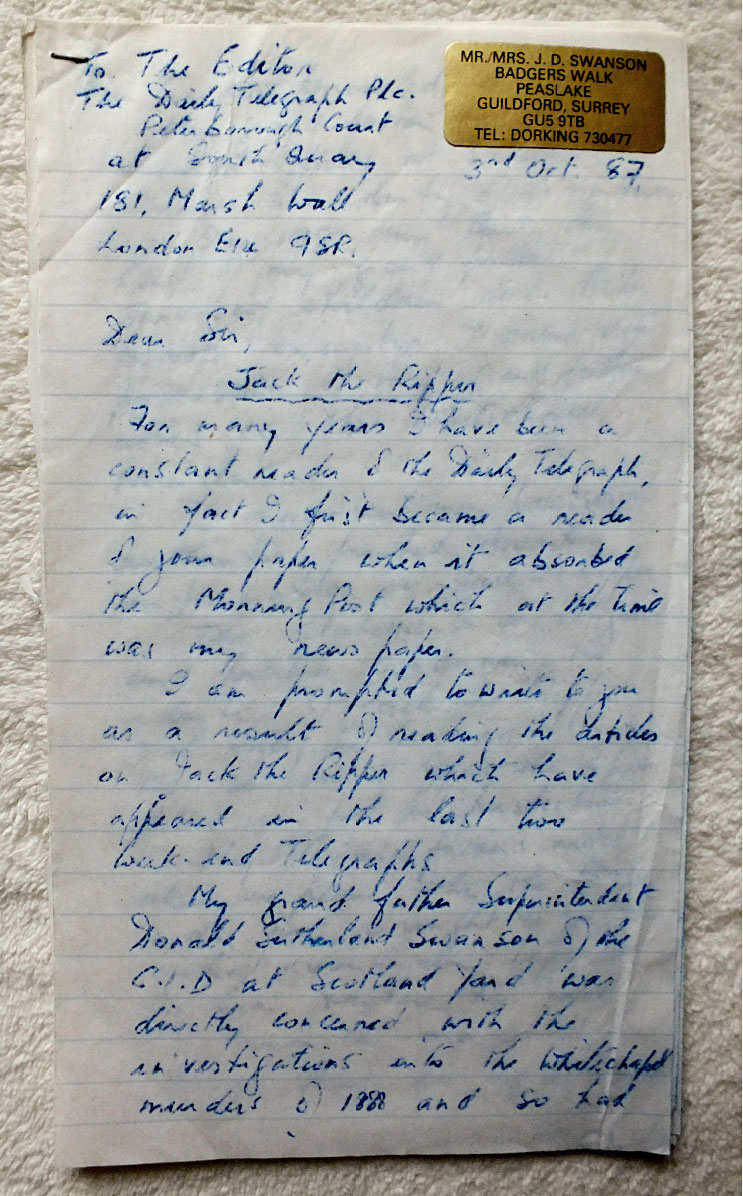 To. The Editor
The Daily Telegraph Plc.
Peterborough Court
at South Quay
181, Marsh Wall
London E14 9SR.
MR./MRS. J. D. SWANSON
BADGERS WALK
PEASLAKE
GUILDFORD, SURREY
GU5 9TB
TEL: DORKING 730477
3rd Oct. 87.
Dear Sir,
Jack the Ripper
For many years I have been a
constant reader of the Daily Telegraph,
in fact I first became a reader
of your paper when it absorbed
the Morning Post which at the time
was my news paper.
I am prompted to write to you
as a result of reading the articles
on Jack the Ripper which have
appeared in the last two
week-end Telegraphs
My grand father Superintendent
Donald Sutherland Swanson of the
C.I.D at Scotland Yard was
directly concerned with the
investigations into the Whitechapel
murders of 1888 and so had